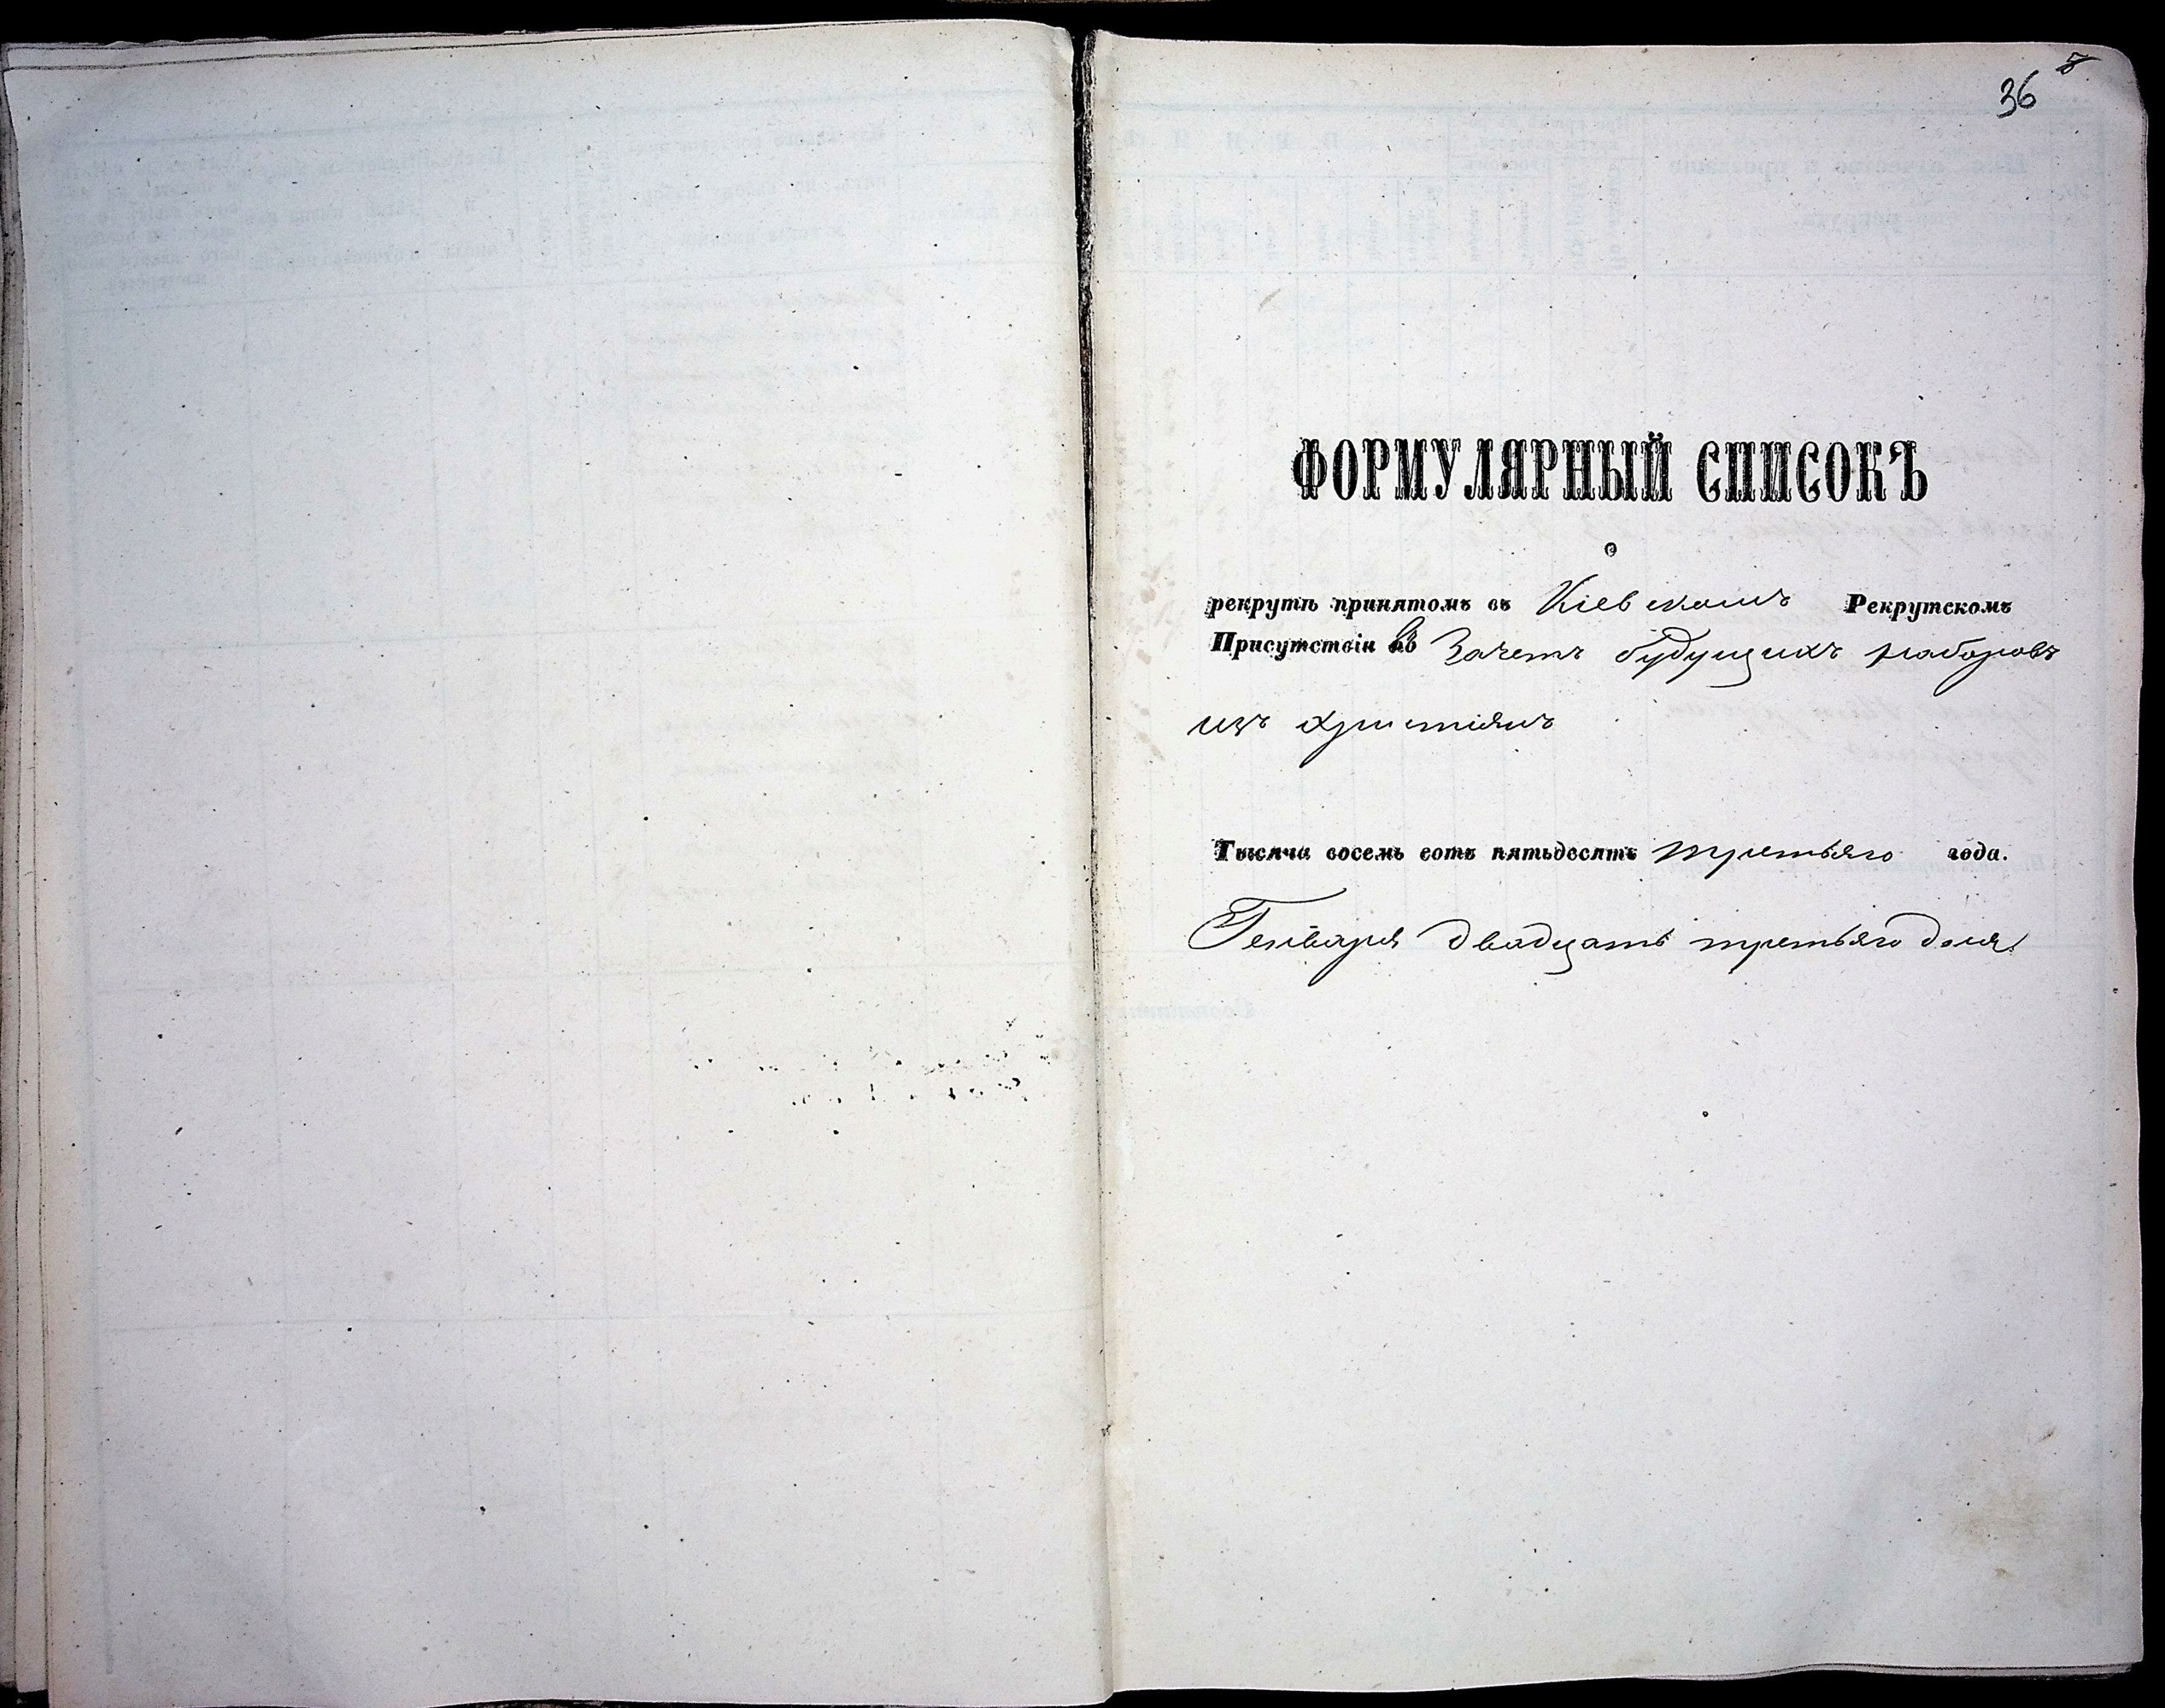 36
ФОРМУЛЯРНЫЙ СПИСОКЪ
о
рекрутѣ принятомъ въ Кіевскомъ Рекрутскомъ
Присутствіи въ Зачетъ будущихъ наборовъ
изъ христіянъ
Тысяча восемь сотъ пятьдесятъ третьяго года.
Генваря двадцать третьяго дня